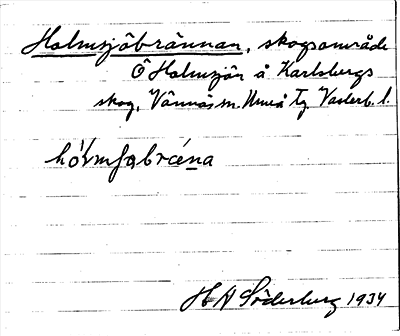 Holmsjöbrännan, skogsområde
Ö Holmsjön å Karlsbergs
skog, Vännäs sn. Umeå Tg Västerb. l.
hólmʃabrǽna
H A Söderberg 1934